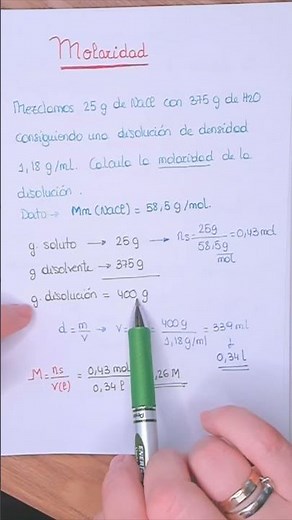 Molaridad
Mezclamos 25 g de NaCl con 375 g de H2O
consiguiendo una disolución de densidad
1,18 g/ml. Calcula la molaridad de la
disolución.
Dato → Mm (NaCl) = 58,5 g/mol.
g. soluto → 25 g → ns = 25g / 58,5g/mol = 0,43 mol
g disolvente → 375 g
g. disolución = 400 g
d = m/V → V = 400 g / 1,18 g/ml = 339 ml
↓
0,34 l
M = ns / V(l) = 0,43 mol / 0,34 l ,26 M
ENER